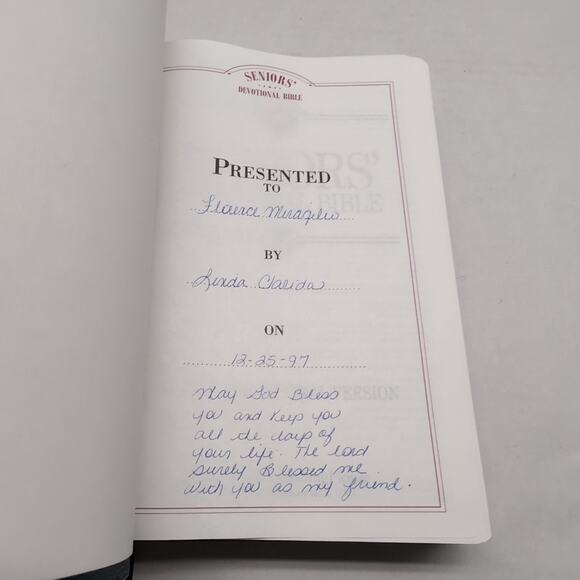 SENIORS'
DEVOTIONAL BIBLE
PRESENTED
TO
Florence
BY
Linda Clarida
ON
12-25-97
May God Bless
you and keep you
all the days of
your life. The lord
surely Blessed me
with you as my friend.